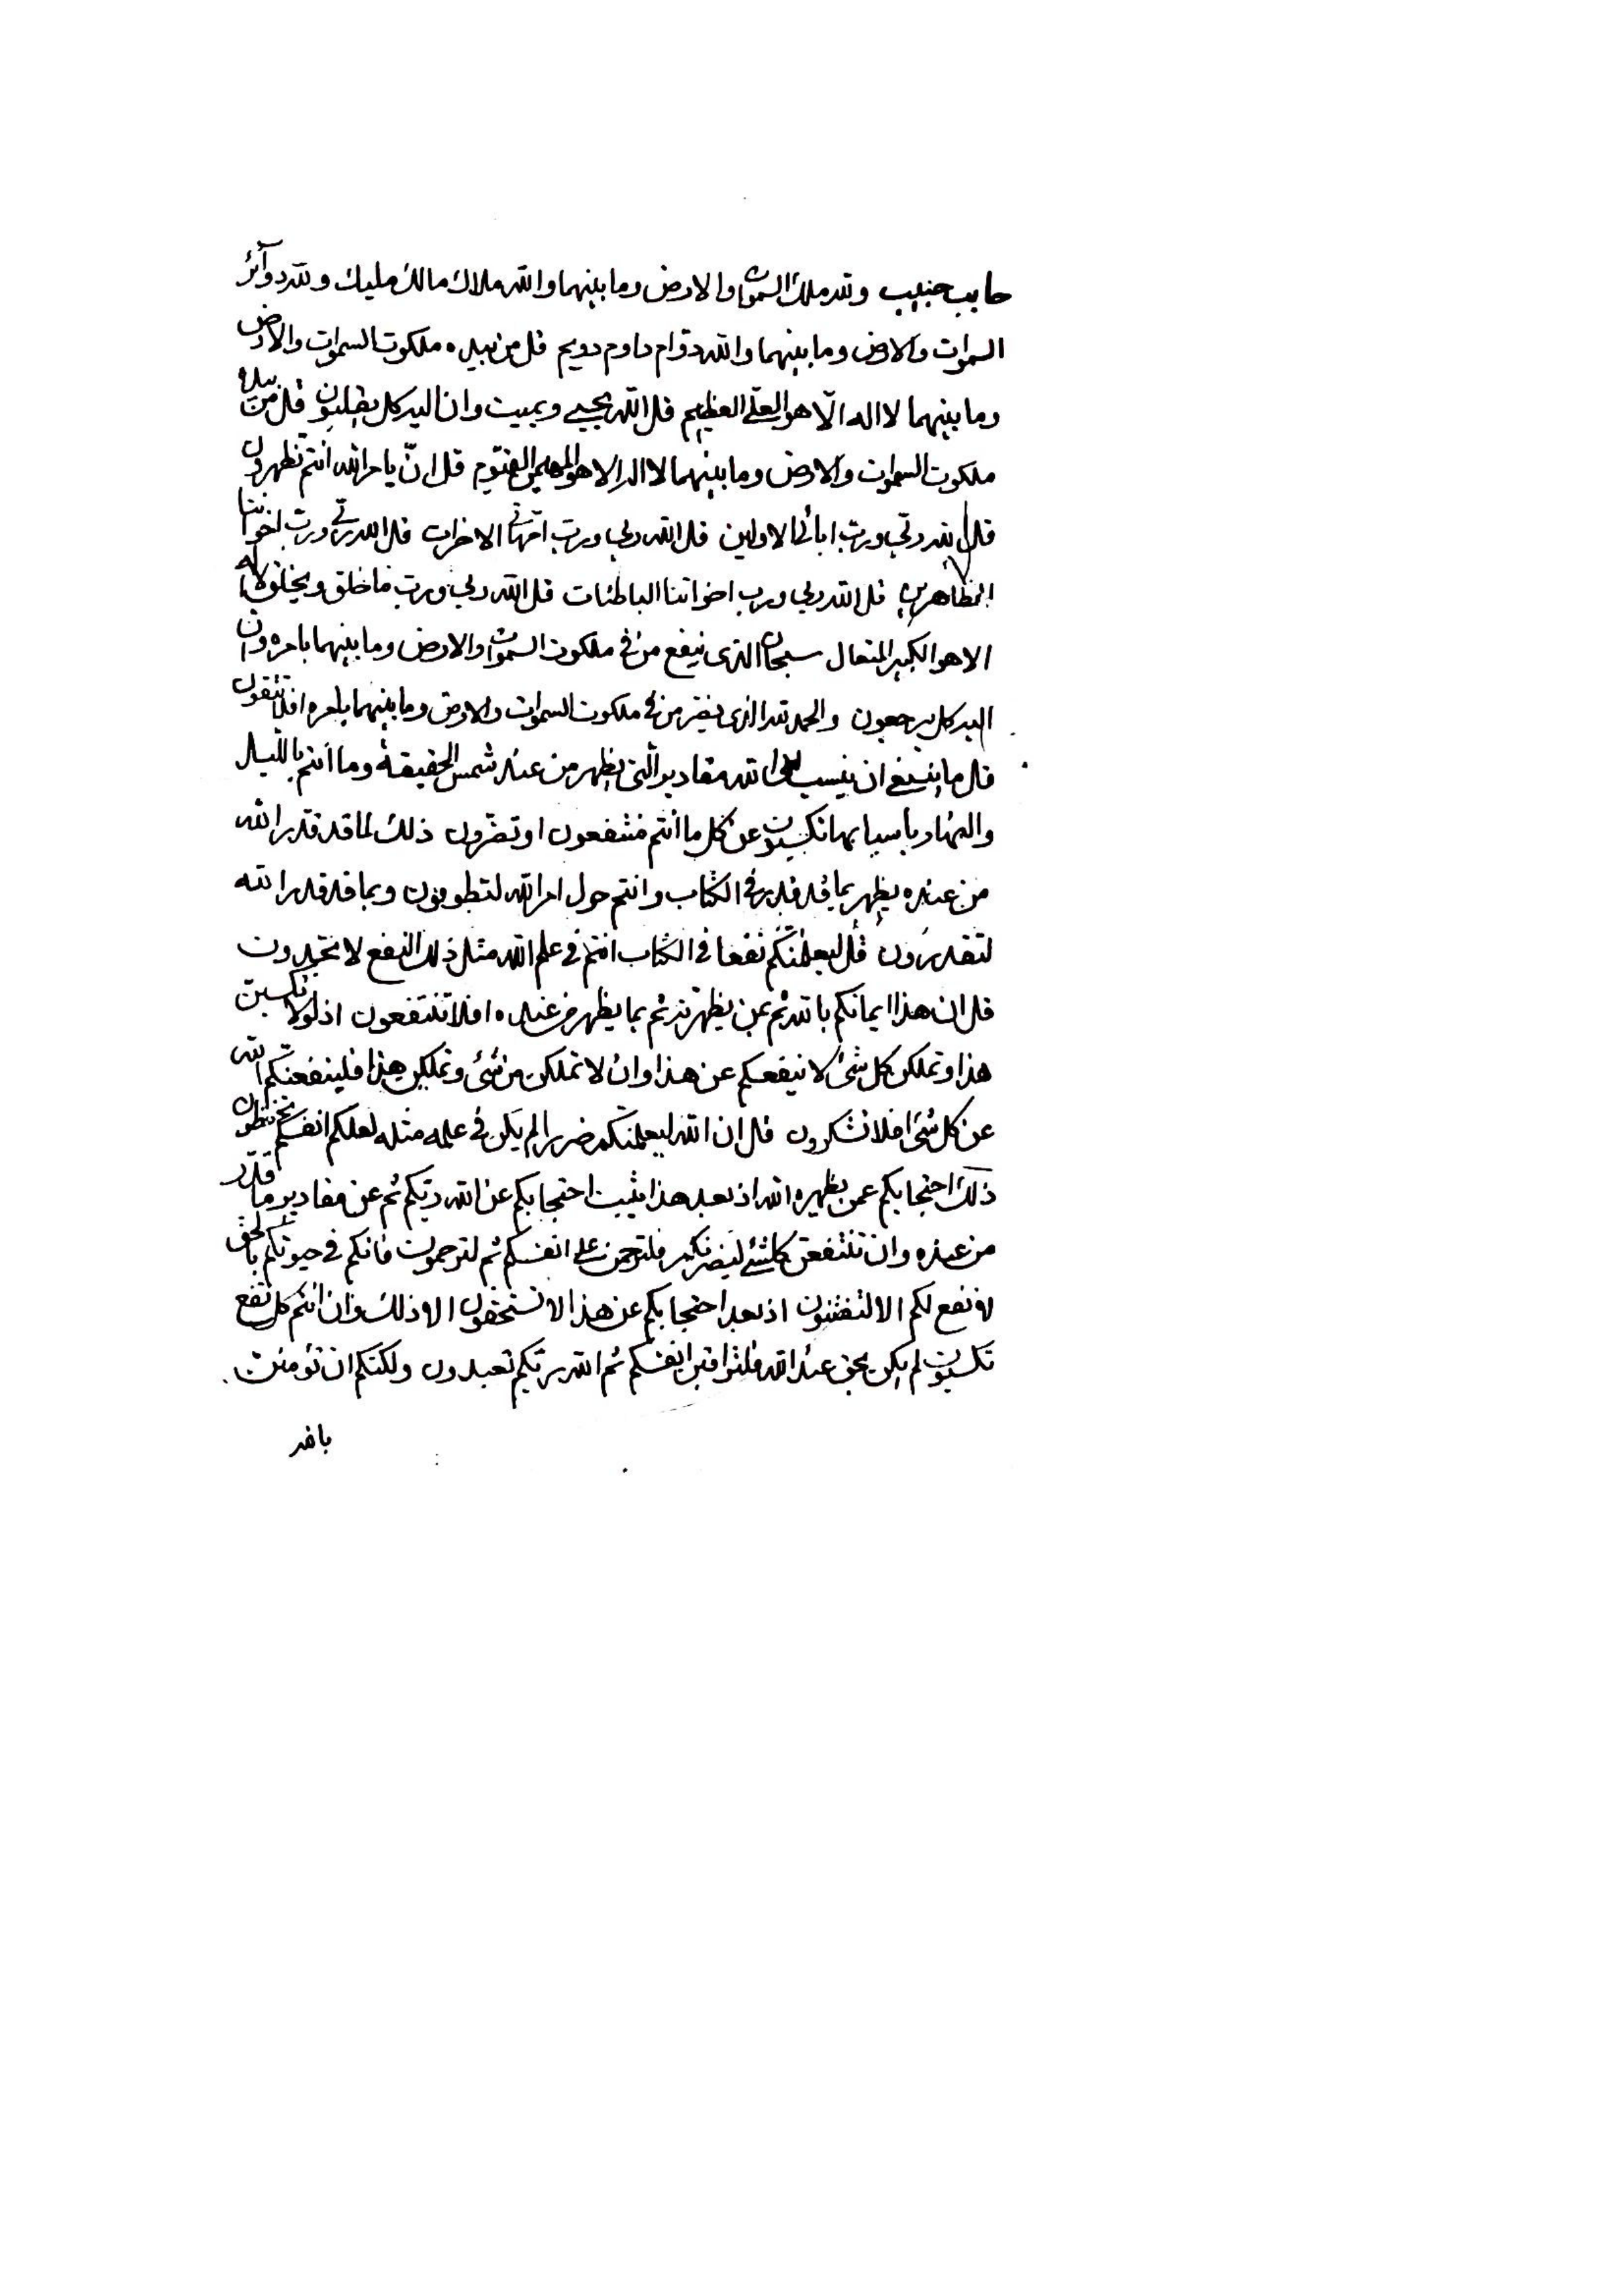 حابب حبيب ولله ملك السموات والارض وما بينهما والله ملاك مالك مليك ولله دوآئر
السموات والارض وما بينهما والله دوام داوم دويم قل من بيده ملكوت السموات والارض
وما بينهما لا اله الّا هو العلي العظيم قل الله يحيي ويميت وان اليه كل يقلبون قل من بيده
ملكوت السموات والارض وما بينهما لا اله الا هو المهيمن القيّوم قل انّ يا مرالله انتم تظهرون
قل الله ربي ورب ابائنا الاولين قل الله ربي ورب امهاتي الاخرات قل الله ربي ورب اخواننا
الظاهرين قل الله ربي ورب اخواتنا الباطنات قل الله ربي ورب ما خلق ويخلق لا اله
الا هو الكبير المتعال سبحان الذي ينفع من في ملكوت السموات والارض وما بينهما بامره وان
اليه كل يرجعون والحمد لله الذي يضر من في ملكوت السموات والارض وما بينهما بامره افلا تتقون
قل ما ينبغي ان ينسب الى الله مقادير التي يظهر من عند شمس الحقيقة وما انتم بالليل
والنهار باسبابها تكسبون عن كل ما انتم منتفعون او تضرون ذلك لما قد قدر الله
من عنده يظهر بما قد قدر في الكتاب وانتم حول امر الله لتطوفون وبما قد قدر الله
لتقدرون قل ليعلمنكم نفعا في الكتاب انتم في علم الله مثل ذلك النفع لا تجدون
قل ان هذا ايمانكم بالله ثم بمن يظهرنه ثم بما يظهر من عنده افلا تنتفعون اذ لولا تكسبن
هذا وتملكن كل شئ لا ينفعكم عن هذا وان لا تملكن من شئ وتملكن هذا فلينفعنكم الله
عن كل شئ افلا تشكرون قل ان الله ليعلمنكم ضرا لم يكن في علمه مثله لعلكم انفسكم تحفظون
ذلك احتجابكم عمن يظهره الله اذ بعد هذا يثبت احتجابكم عن الله ربكم ثم عن مقادير ما قدّر
من عنده وان تنتفعن كلشئ ليضرنكم فلترحمن على انفسكم ثم لترحمون فانكم في حيوتكم بالحق
لا نفع لكم الا لتفتنون اذ بعد احتجابكم عن هذا لا تستحقون الا ذلك وان انتم كل نفع
تكسبون لم يكن بحق عند الله فلتراقبن انفسكم ثم الله ربكم تعبدون ولكنكم ان تؤمنن